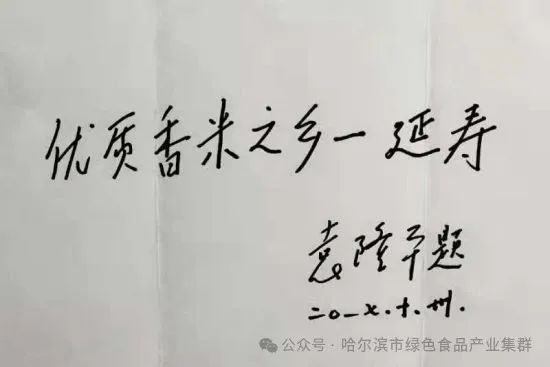 优质香米之乡—延寿
袁隆平题
二〇一七.十.卅.
公众号·哈尔滨市绿色食品产业集群